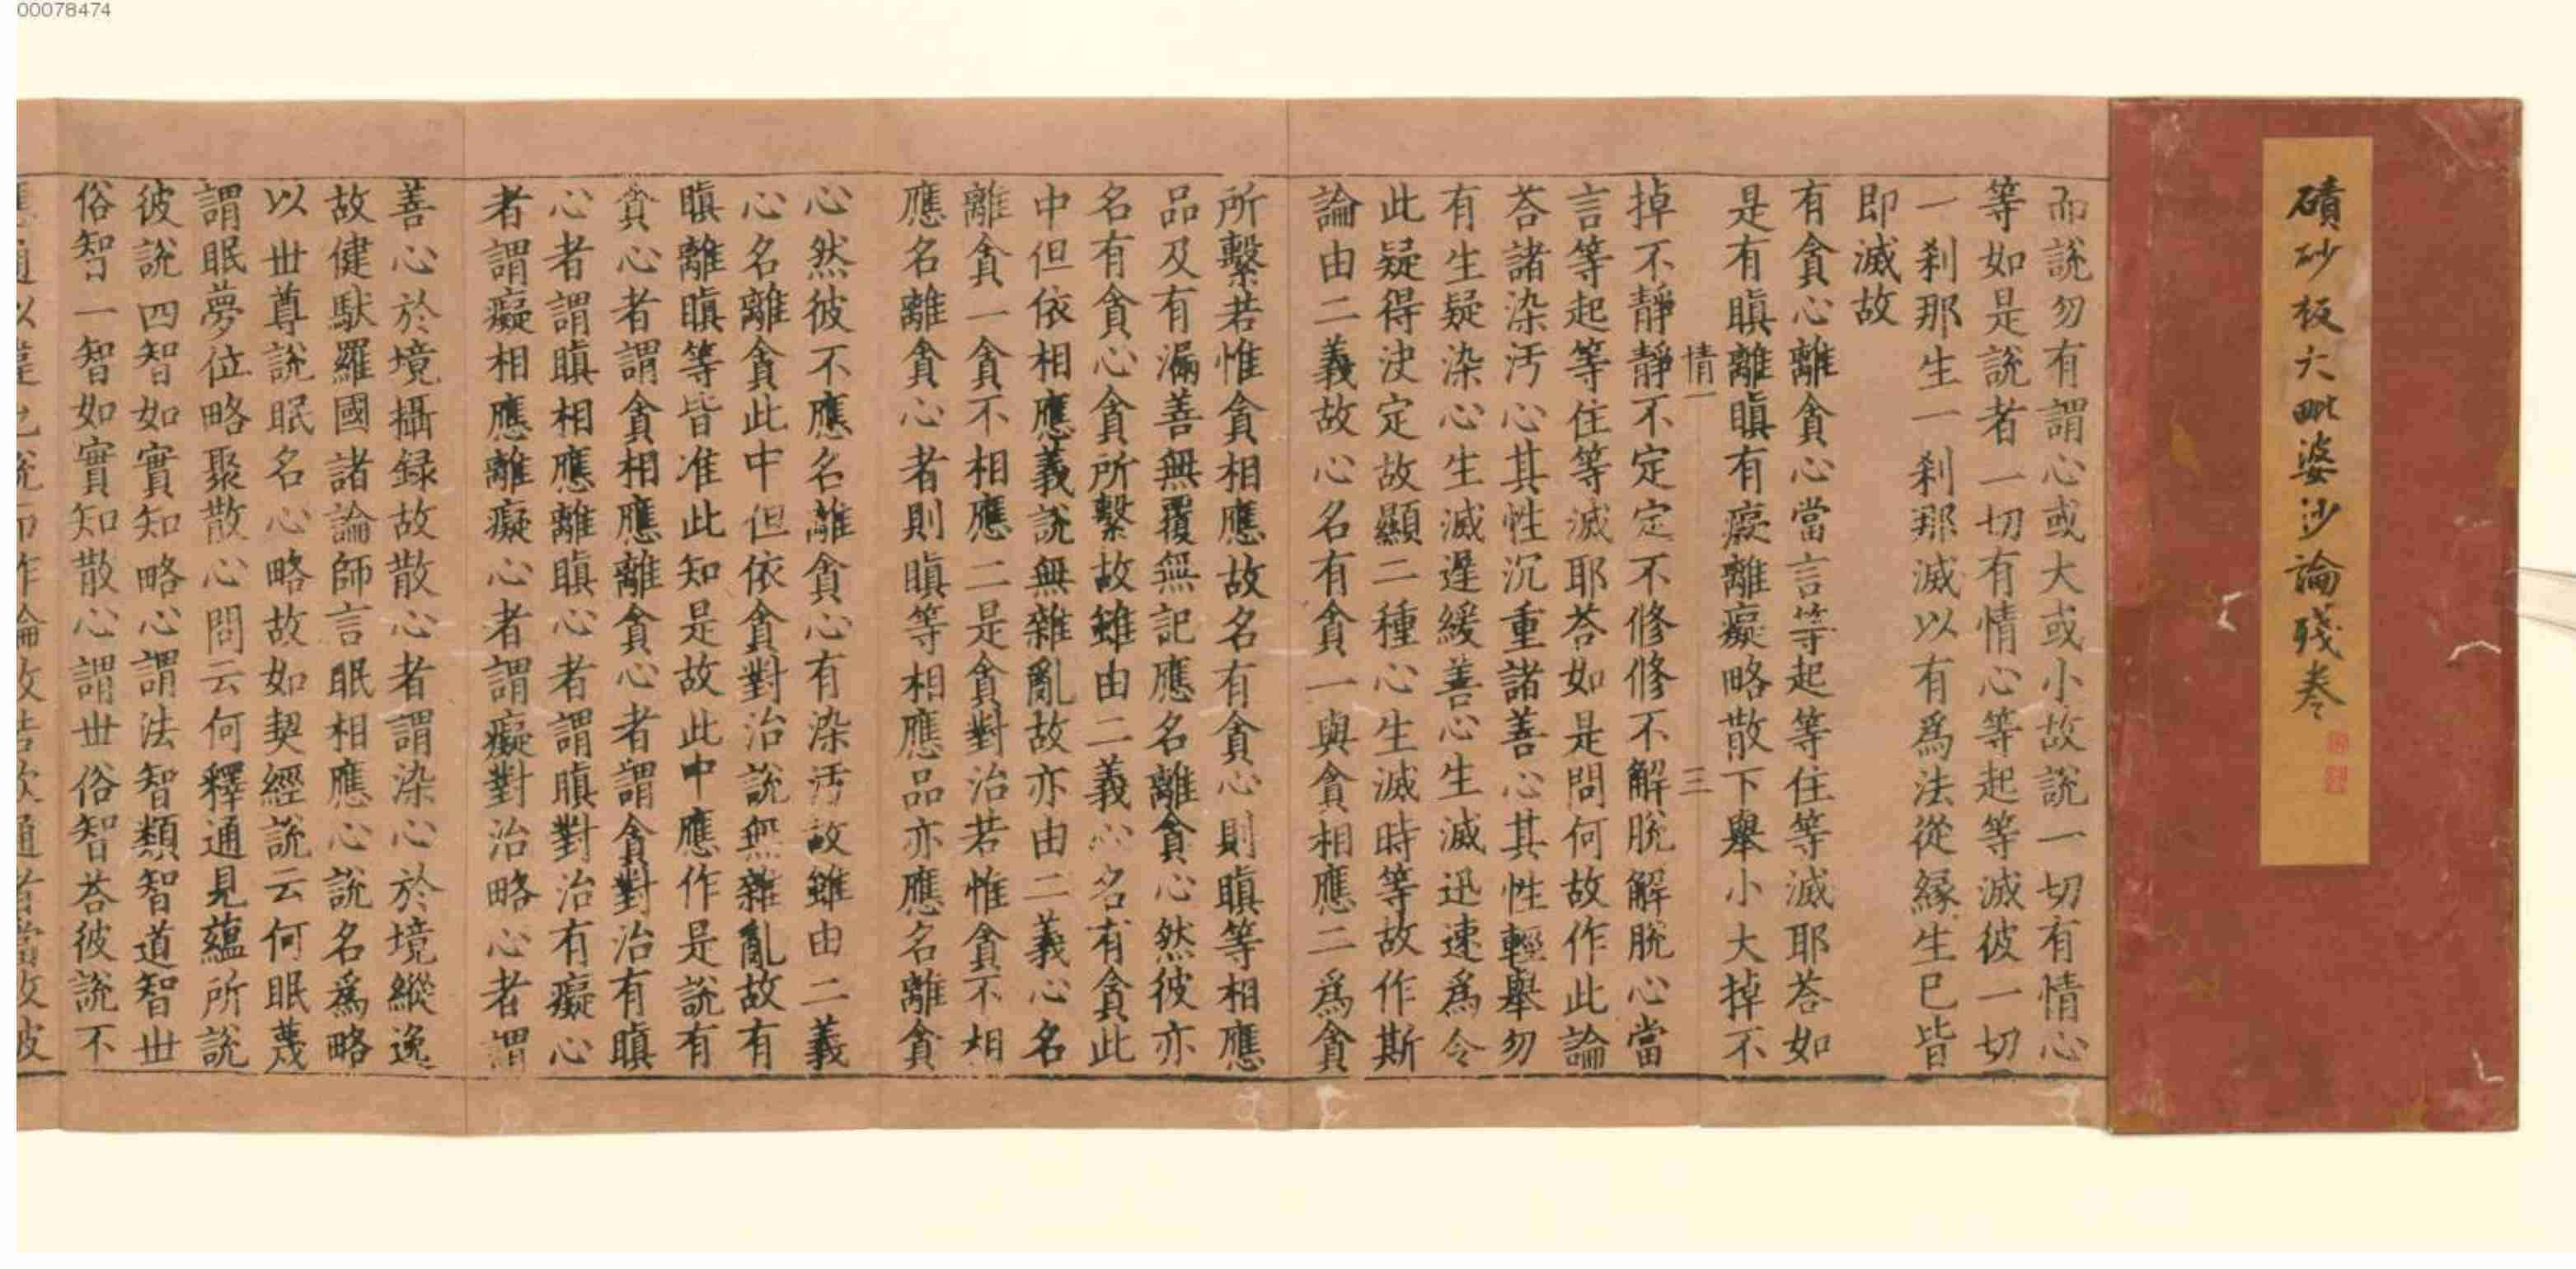 00078474
磧砂板大毗婆沙論殘卷
而說勿有謂心或大或小故說一切有情心
等如是說者一切有情心等起等滅彼一切
一剎那生一剎那滅以有爲法從緣生已皆
即滅故
有貪心離貪心當言等起等住等滅耶荅如
是有瞋離瞋有癡離癡略散下舉小大掉不
情一 三
掉不靜靜不定定不修修不解脫解脫心當
言等起等住等滅耶荅如是問何故作此論
荅諸染汚心其性沉重諸善心其性輕舉勿
有生疑染心生滅遲緩善心生滅迅速爲令
此疑得決定故顯二種心生滅時等故作斯
論由二義故心名有貪一與貪相應二爲貪
所繫若惟貪相應故名有貪心則瞋等相應
品及有漏善無覆無記應名離貪心然彼亦
名有貪心貪所繫故雖由二義心名有貪此
中但依相應義說無雜亂故亦由二義心名
離貪一貪不相應二是貪對治若惟貪不相
應名離貪心者則瞋等相應品亦應名離貪
心然彼不應名離貪心有染汚故雖由二義
心名離貪此中但依貪對治說無雜亂故有
瞋離瞋等皆准此知是故此中應作是說有
貪心者謂貪相應離貪心者謂貪對治有瞋
心者謂瞋相應離瞋心者謂瞋對治有癡心
者謂癡相應離癡心者謂癡對治略心者謂
善心於境攝録故散心者謂染心於境縱逸
故健馱羅國諸論師言眠相應心說名爲略
以世尊說眠名心略故如契經說云何眠蔑
謂眠夢位略聚散心問云何釋通見蘊所說
彼說四智如實知略心謂法智類智道智世
俗智一智如實知散心謂世俗智荅彼說不